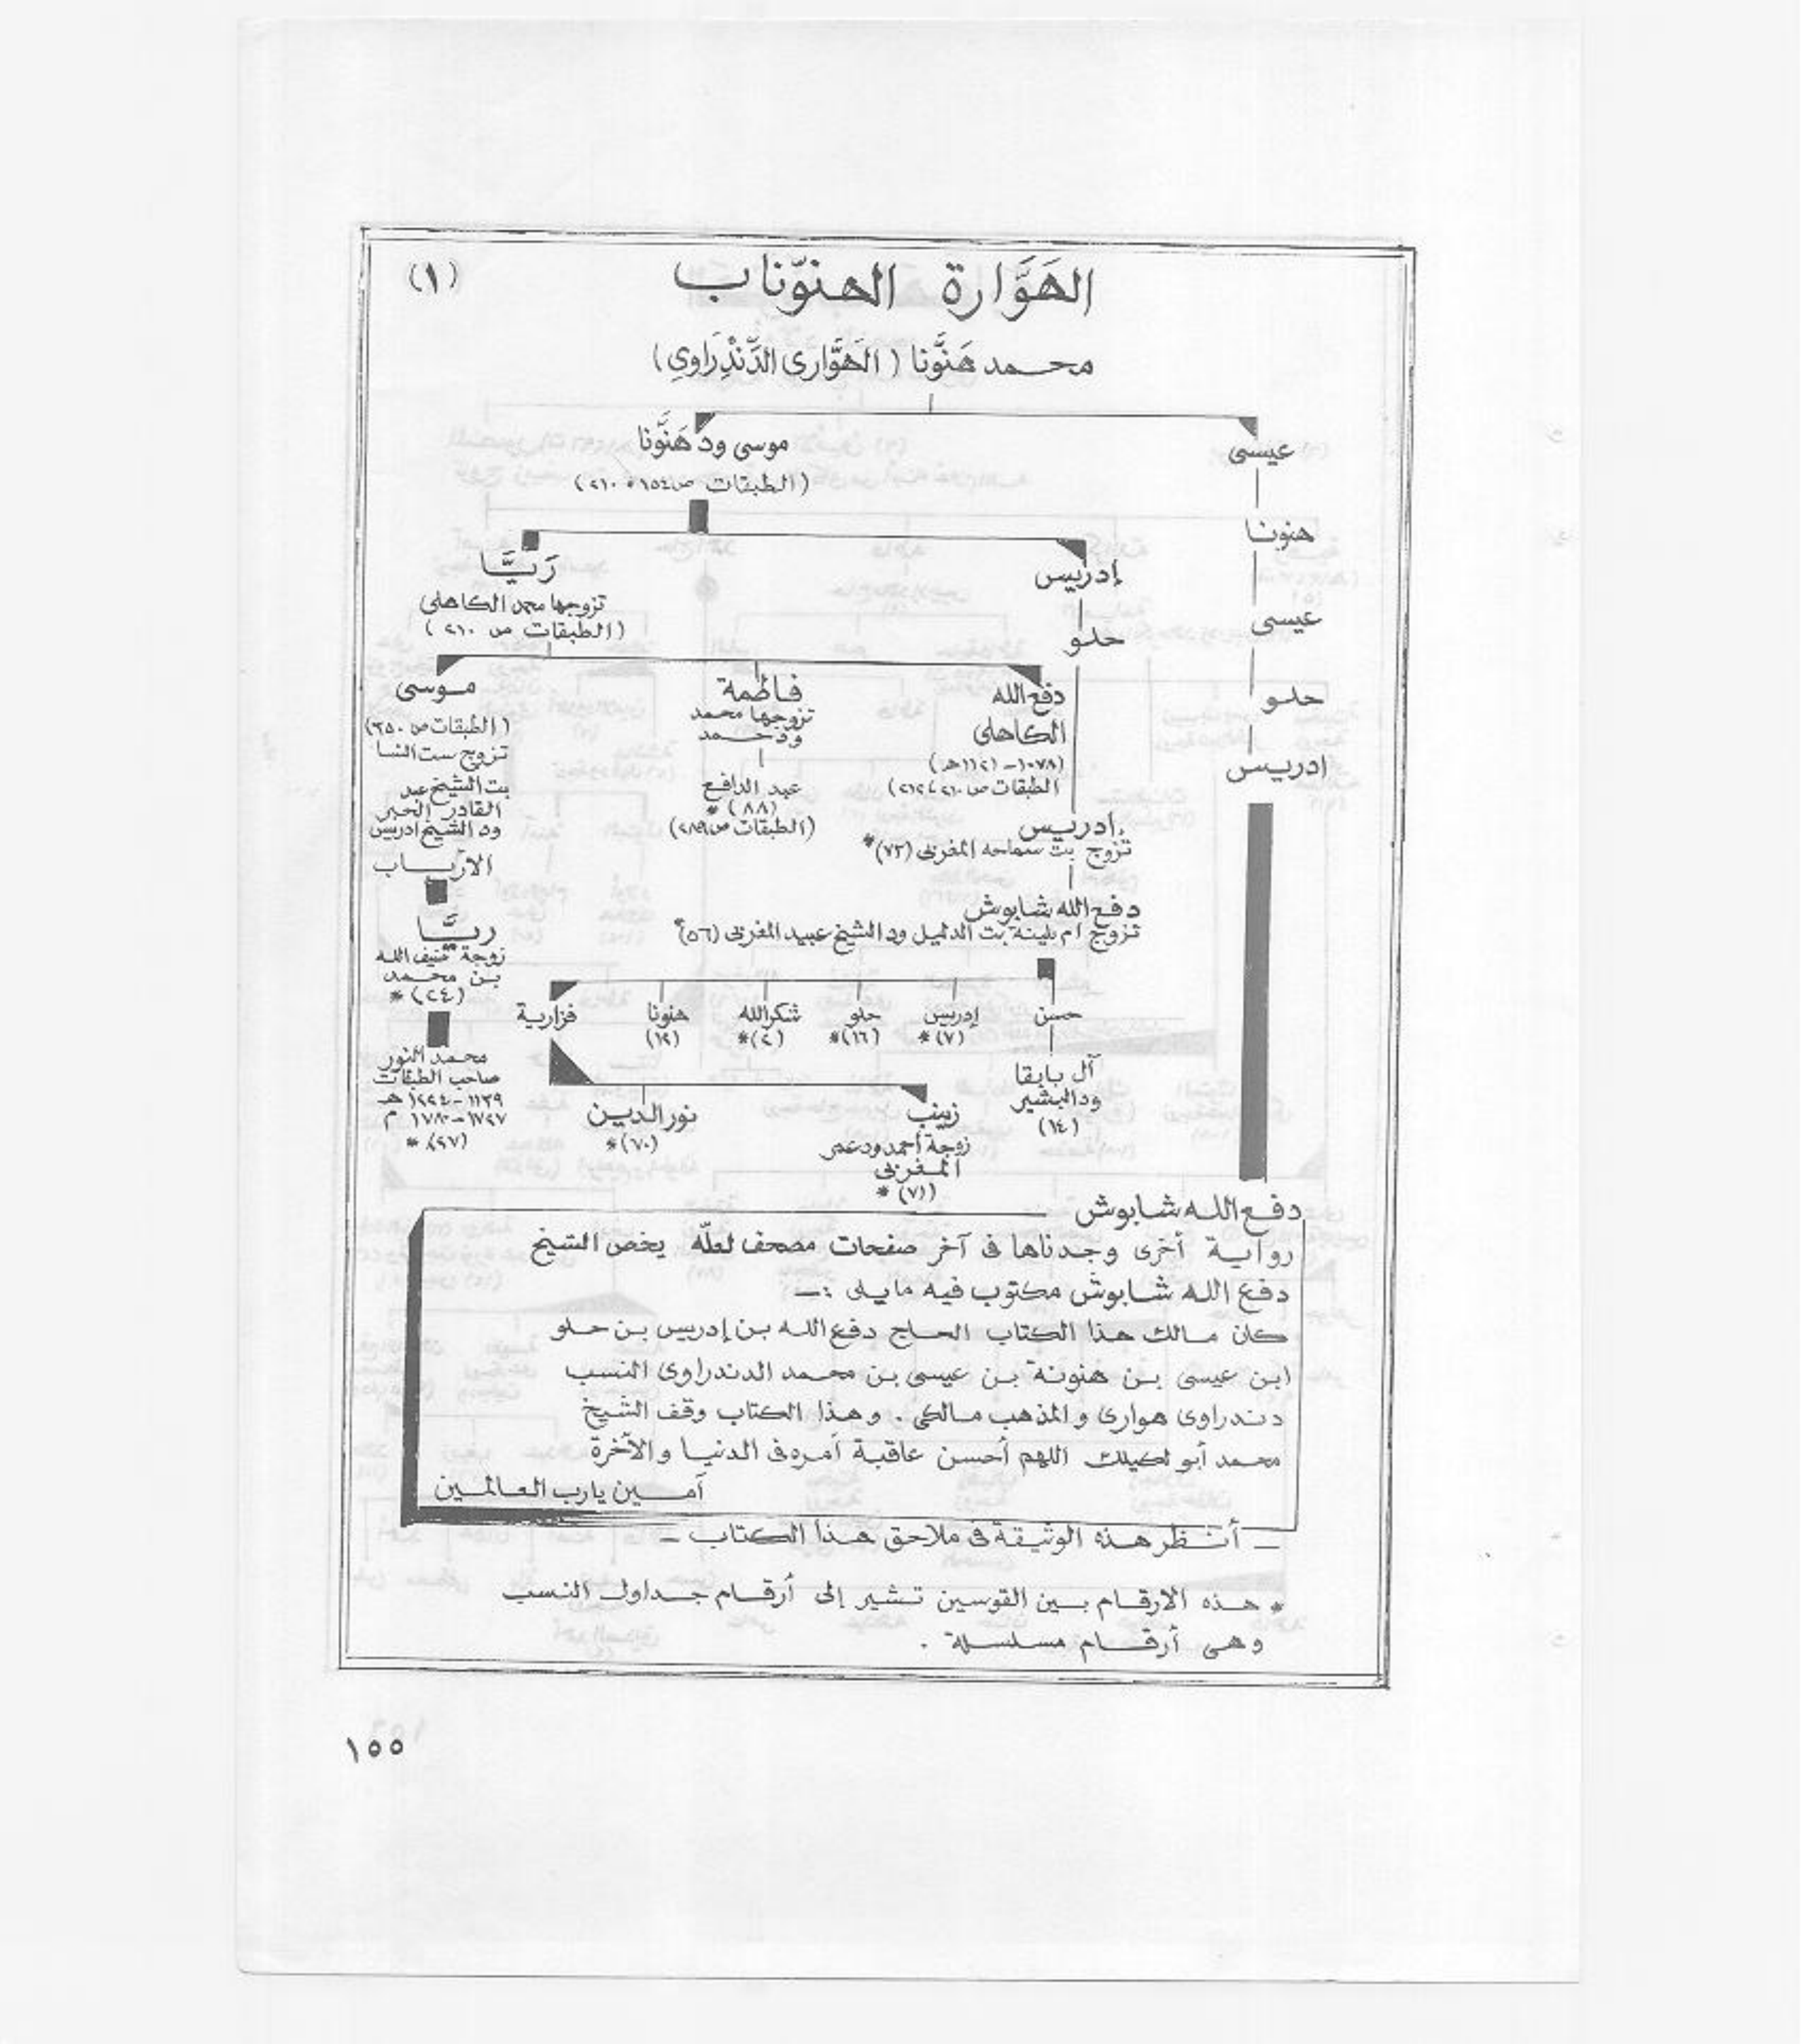 (١)
الهَوَّارة الهنوّناب
محمد هَنَّونا (الهَوَّارى الدَّنْدِرَاوِي)
عيسى
موسى ود هَنَّونا
(الطبقات ص ١٥٤، ٢١٠)
هنونا
إدريس
رَيَّا
تزوجها محمد الكاهلى
(الطبقات ص ٢١٠)
عيسى
حلو
حلو
ادريس
دفع الله
الكاهلى
(١٠٧٨-١١٢١هـ)
الطبقات ص ٢١٠، ٢١٢)
فاطمة
تزوجها محمد
ود حمد
عبد الدافع
(٨٨) *
(الطبقات ص ٢٨٩)
موسى
(الطبقات ص ٣٥٠)
تزوج ست النسا
بت الشيخ عبد
القادر الحبر
ود الشيخ ادريس
الأرباب
ريَّا
زوجة ضيف الله
بن محمد
(٢٤) *
محمد النور
صاحب الطبقات
١١٣٩-١٢٢٤ هـ
١٧٢٧-١٧٨٠ م
(٢٧) *
إدريس
تزوج بت سماحه المغربى (٧٣)*
دفع الله شابوش
تزوج ام بلينة بت الدليل ود الشيخ عبيد المغربى (٥٦)*
حسن
إدريس
(٧) *
حلو
(١٦) *
شكرالله
(٢) *
هنونا
(١٢)
فزارية
آل بابقا
ود البشير
(١٤)
زينب
زوجة أحمد ود عمر
المغربى
(٧١) *
نور الدين
(٧٠) *
دفع الله شابوش
رواية أخرى وجدناها فى آخر صفحات مصحف لعلّه يخص الشيخ
دفع الله شابوش مكتوب فيه مايلى :-
كان مالك هذا الكتاب الحاج دفع الله بن إدريس بن حلو
ابن عيسى بن هنونة بن عيسى بن محمد الدندراوى النسب
دندراوى هوارى والمذهب مالكى . وهذا الكتاب وقف الشيخ
محمد أبو لكيلك اللهم أحسن عاقبة أمره فى الدنيا والآخرة
آمــين يارب العالمــين
- أنظر هذه الوثيقة فى ملاحق هذا الكتاب -
* هذه الارقام بين القوسين تشير إلى أرقام جداول النسب
وهى أرقام مسلسلة .
١٥٥